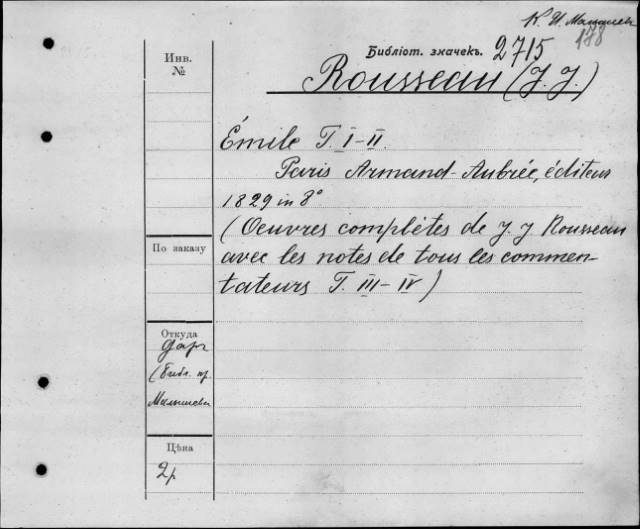 К. И. Малышев
178
Библіот. значекъ. 2715
Инв.
№
Rousseau (J. J.)
Émile T. I-II.
Paris Armand-Aubrée, éditeur
1829 in 8°
(Oeuvres complètes de J. J Rousseau
avec les notes de tous les commen-
tateurs T. III-IV)
По заказу
Откуда
дар
(Библ. пр.
Малышева
Цѣна
2р